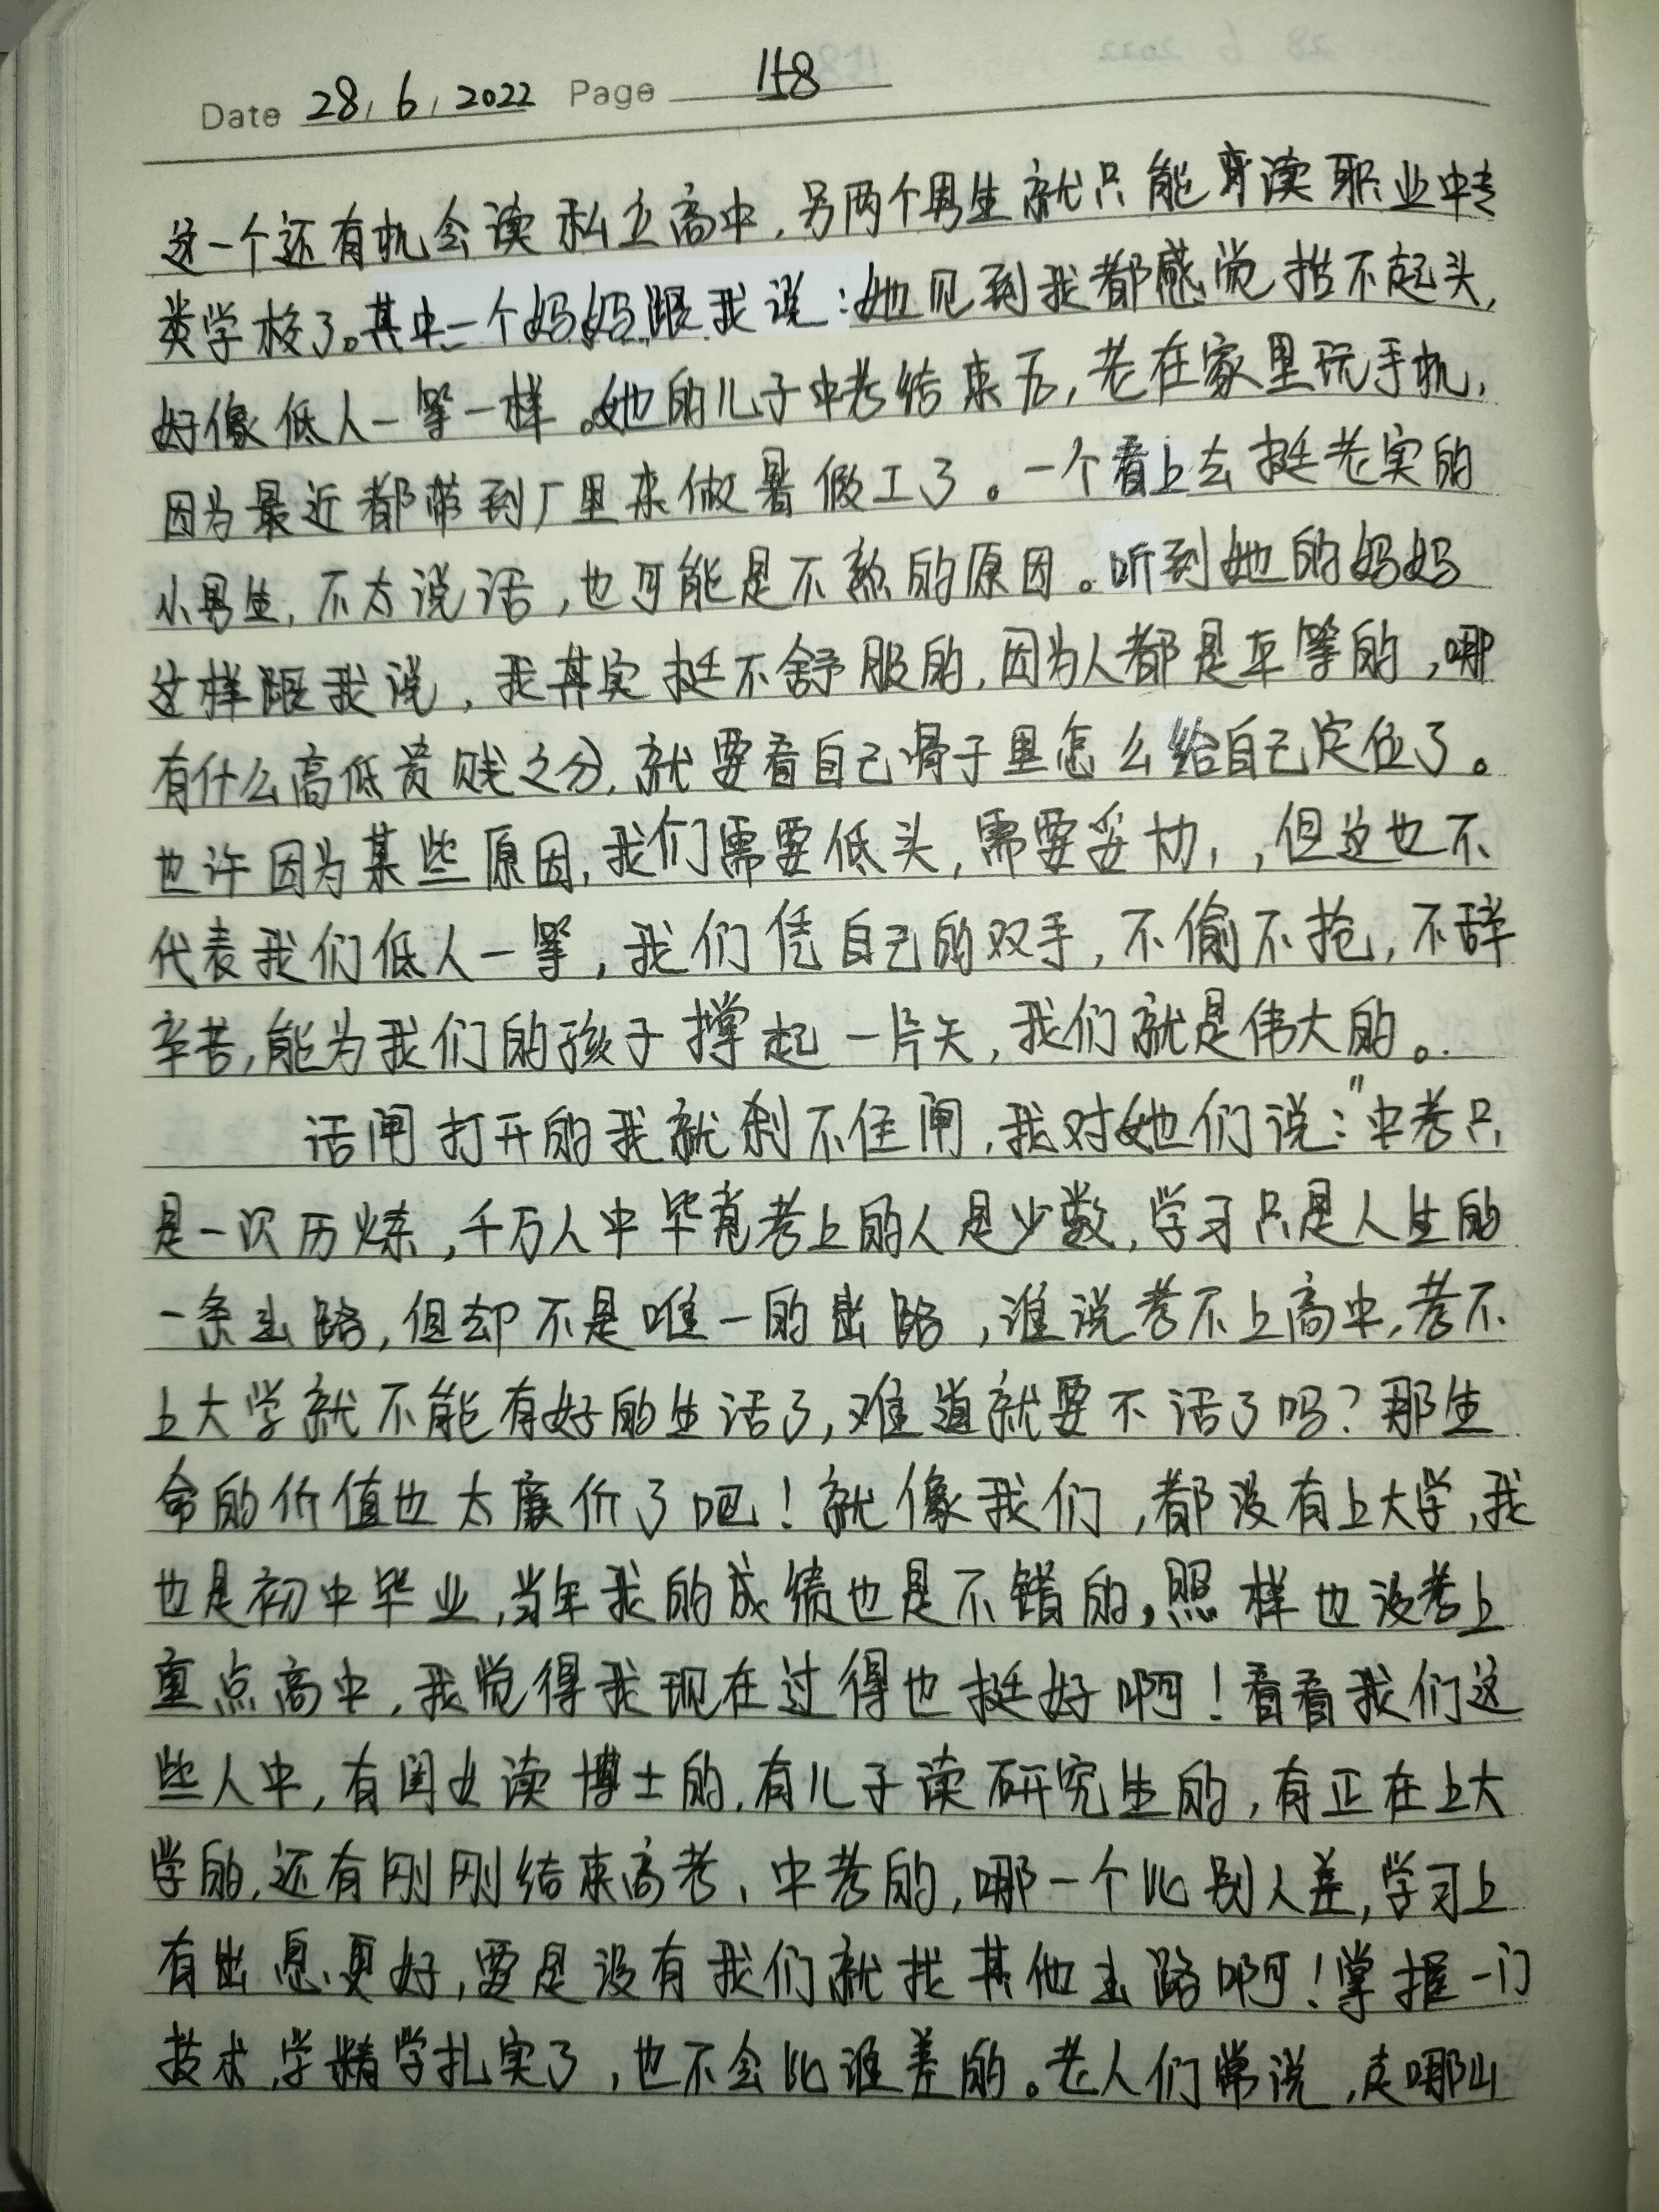 Date 28, 6, 2022 Page 158
这一个还有机会读私立高中,另两个男生就只能读职业中专
类学校了。其中一个妈妈跟我说:她见到我都感觉抬不起头,
好像低人一等一样。她的儿子中考结束后,老在家里玩手机,
因为最近都带到厂里来做暑假工了。一个看上去挺老实的
小男生,不太说话,也可能是不熟的原因。听到她的妈妈
这样跟我说,我其实挺不舒服的,因为人都是平等的,哪
有什么高低贵贱之分,就要看自己骨子里怎么给自己定位了。
也许因为某些原因,我们需要低头,需要妥协,,但这也不
代表我们低人一等,我们凭自己的双手,不偷不抢,不辞
辛苦,能为我们的孩子撑起一片天,我们就是伟大的。
话闸打开的我就刹不住闸,我对她们说:"中考只
是一次历炼,千万人中毕竟考上的人是少数,学习只是人生的
一条出路,但却不是唯一的出路,谁说考不上高中,考不
上大学就不能有好的生活了,难道就要不活了吗?那生
命的价值也太廉价了吧!就像我们,都没有上大学,我
也是初中毕业,当年我的成绩也是不错的,照样也没考上
重点高中,我觉得我现在过得也挺好啊!看看我们这
些人中,有闺女读博士的,有儿子读研究生的,有正在上大
学的,还有刚刚结束高考、中考的,哪一个比别人差,学习上
有出息更好,要是没有我们就找其他出路啊!掌握一门
技术,学精学扎实了,也不会比谁差的。老人们常说,走哪山